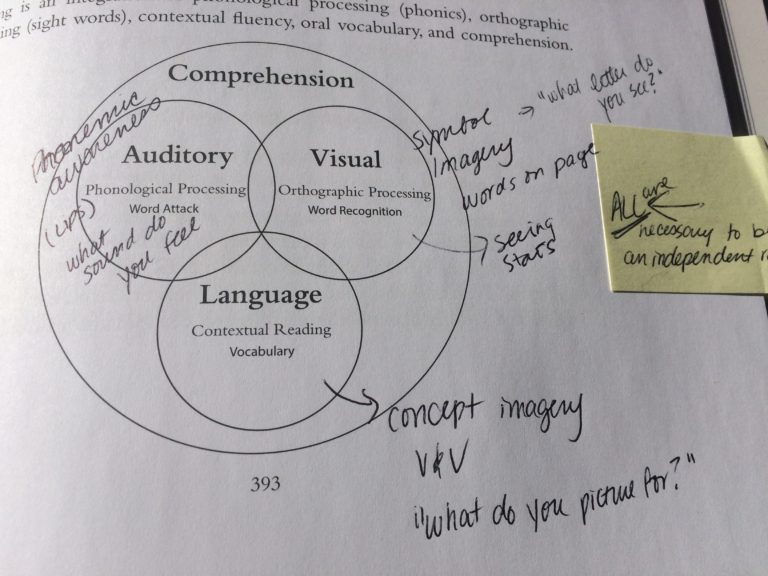 processing (phonics), orthographic
(sight words), contextual fluency, oral vocabulary, and comprehension.
Comprehension
Phonemic
awareness
Auditory
Phonological Processing
Word Attack
(LIPS)
what
sound do
you feel
Visual
Orthographic Processing
Word Recognition
symbol
Imagery
words on page
"what letter do
you see?"
seeing
stars
ALL are
necessary to b
an independent r
Language
Contextual Reading
Vocabulary
concept imagery
V&V
"what do you picture for?"
393